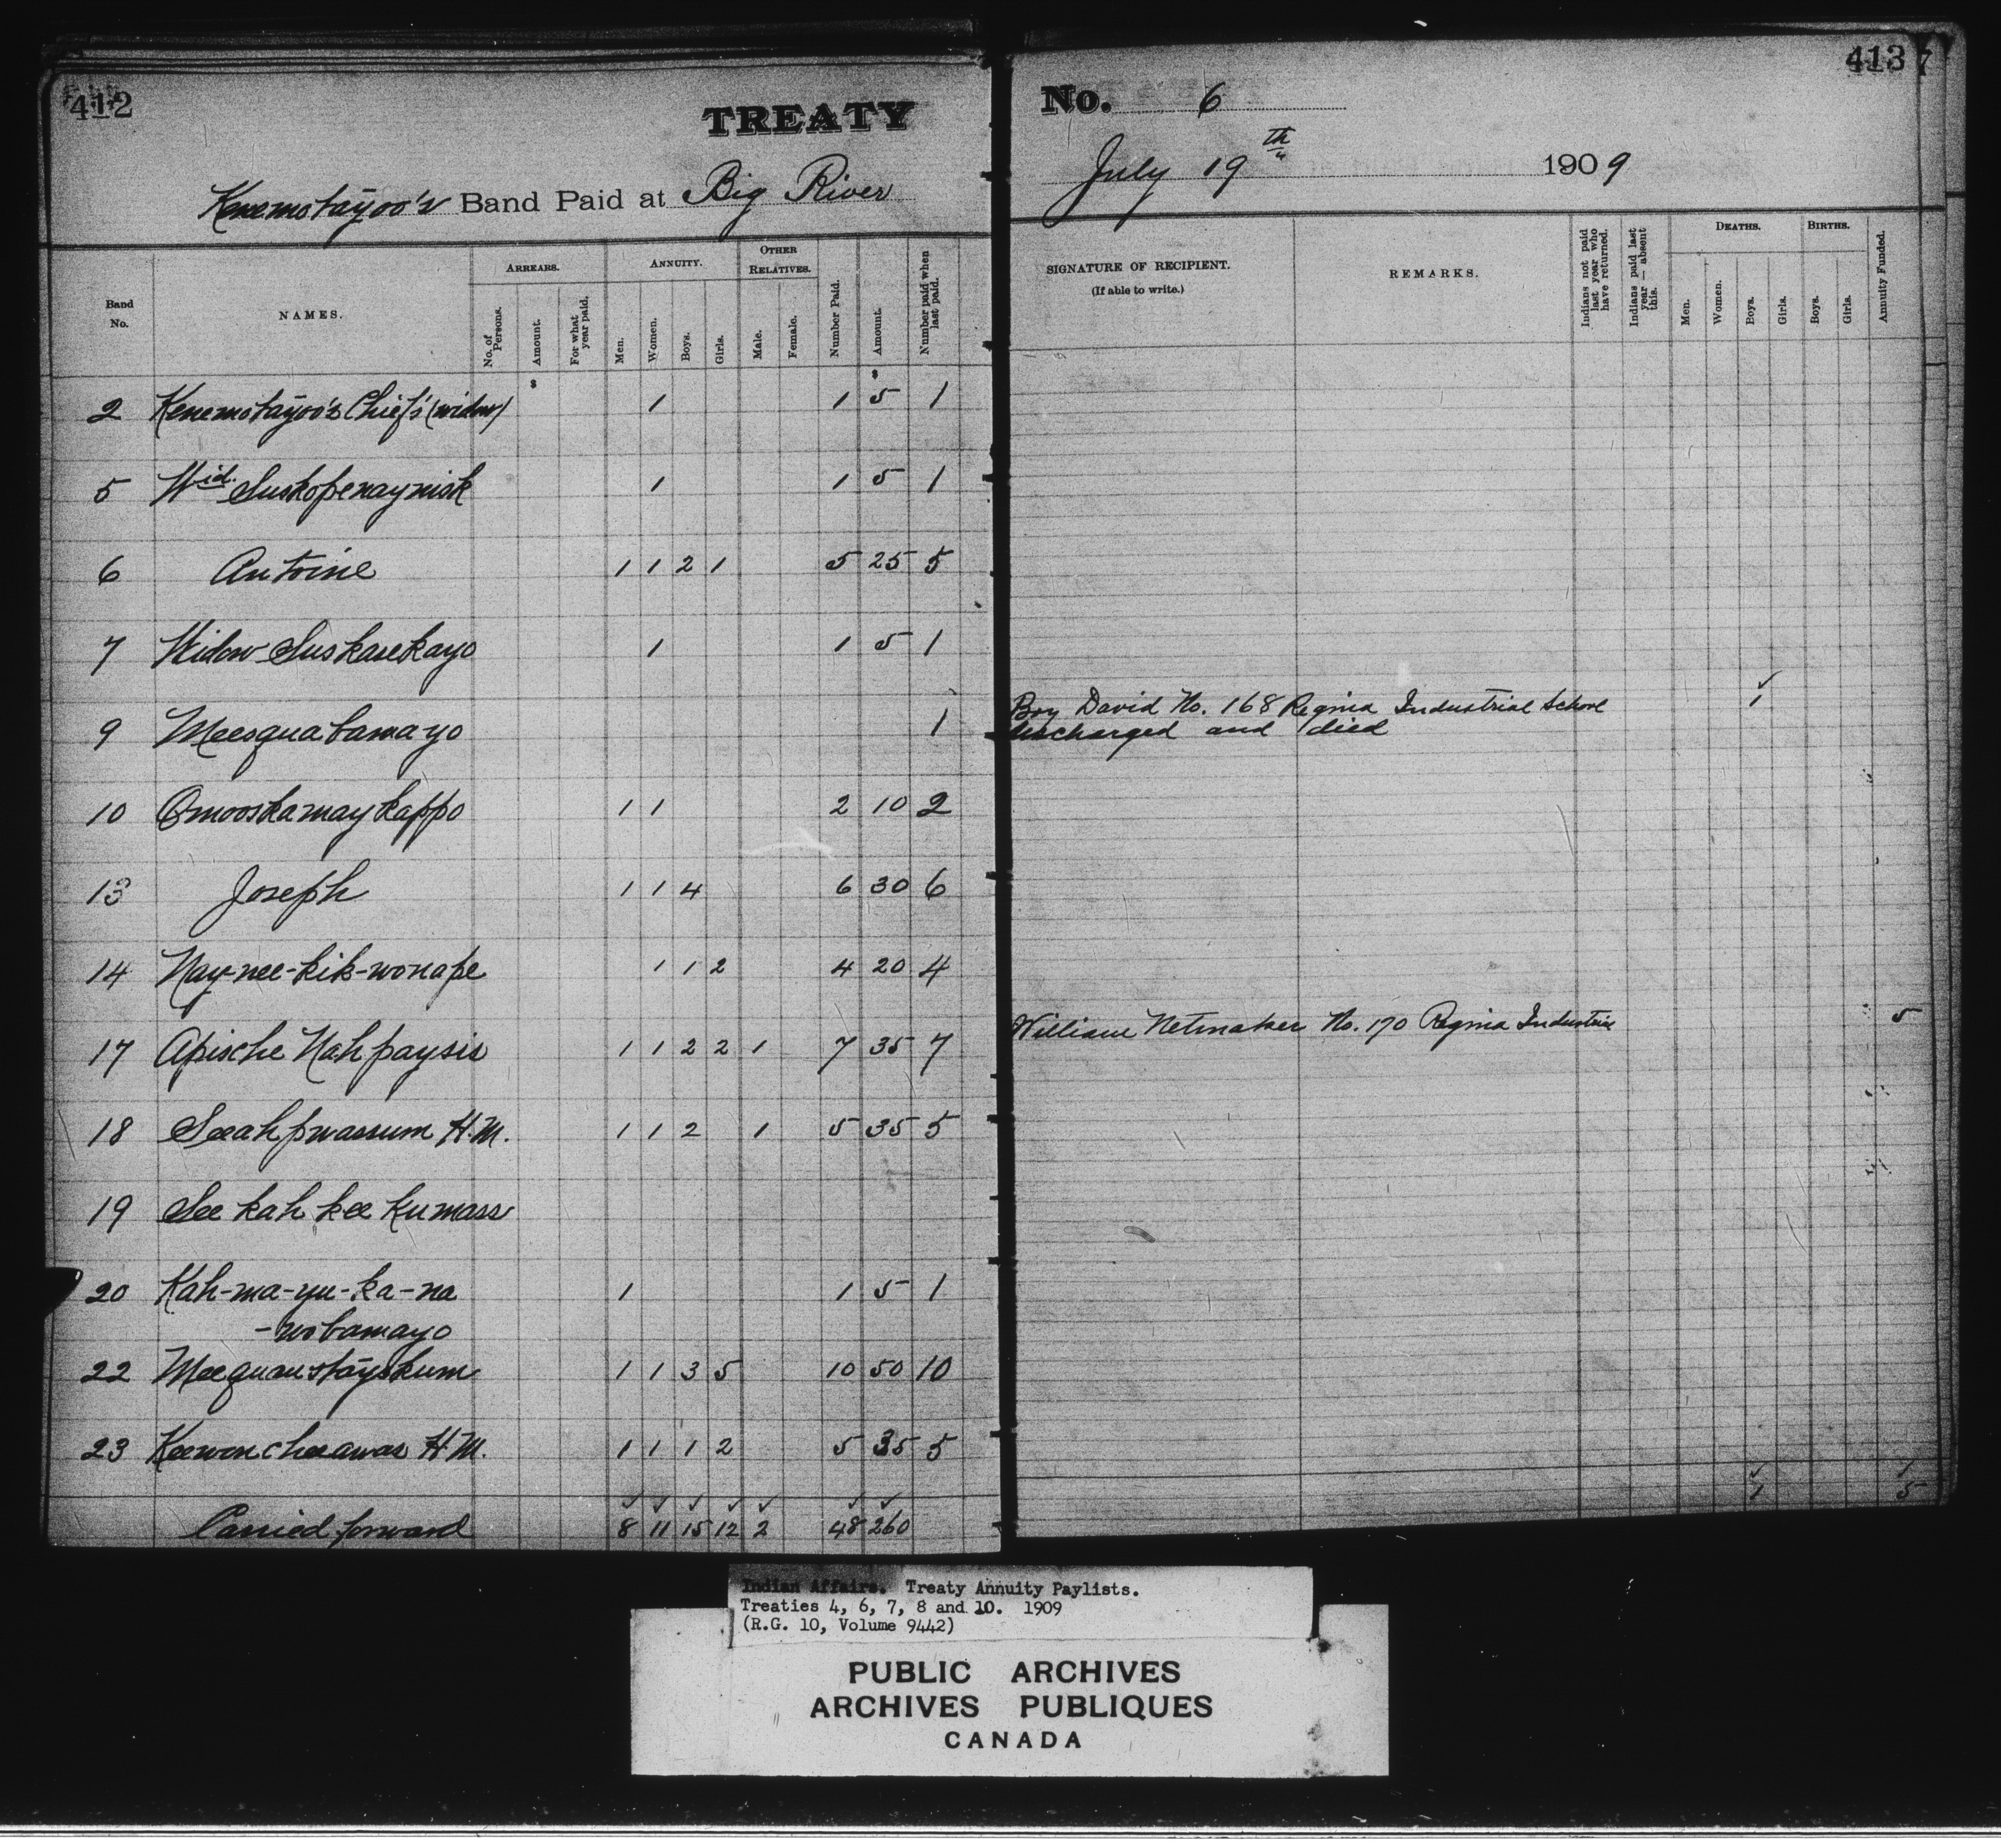 412
TREATY
Kenemotayoo's Band Paid at Big River
Band No.
NAMES.
ARREARS.
No. of Persons.
Amount.
For what year paid.
ANNUITY.
Men.
Women.
Boys.
Girls.
OTHER RELATIVES.
Male.
Female.
Number Paid.
Amount.
Number paid when last paid.
$ $
2 Kenemotayoo's Chief's (widow) 1 1 5 1
5 Wid. Suskopenaynisk 1 1 5 1
6 Antoine 1 1 2 1 5 25 5
7 Widow Suskasekayo 1 1 5 1
9 Meesquatamayo 1
10 Omooskamaykappo 1 1 2 10 2
13 Joseph 1 1 4 6 30 6
14 Nay-nee-kik-wonape 1 1 2 4 20 4
17 Apische Nahpaysis 1 1 2 2 1 7 35 7
18 Seeahpwassum H.M. 1 1 2 1 5 35 5
19 See kah kee kumass
20 Kah-ma-yu-ka-na 1 1 5 1
-wotamayo
22 Meequanstayskum 1 1 3 5 10 50 10
23 Keewencheeawas H.M. 1 1 1 2 5 35 5
Carried forward 8 11 15 12 2 48 260
413
7
No. 6
July 19th 1909
SIGNATURE OF RECIPIENT.
(If able to write.)
REMARKS.
Indians not paid last year who have returned.
Indians paid last year — absent this.
DEATHS.
Men.
Women.
Boys.
Girls.
BIRTHS.
Boys.
Girls.
Annuity Funded.
Boy David No. 168 Regina Industrial School 1
discharged and died
William Netmaker No. 170 Regina Industrial 5
1 5
Indian Affairs. Treaty Annuity Paylists.
Treaties 4, 6, 7, 8 and 10. 1909
(R.G. 10, Volume 9442)
PUBLIC ARCHIVES
ARCHIVES PUBLIQUES
CANADA